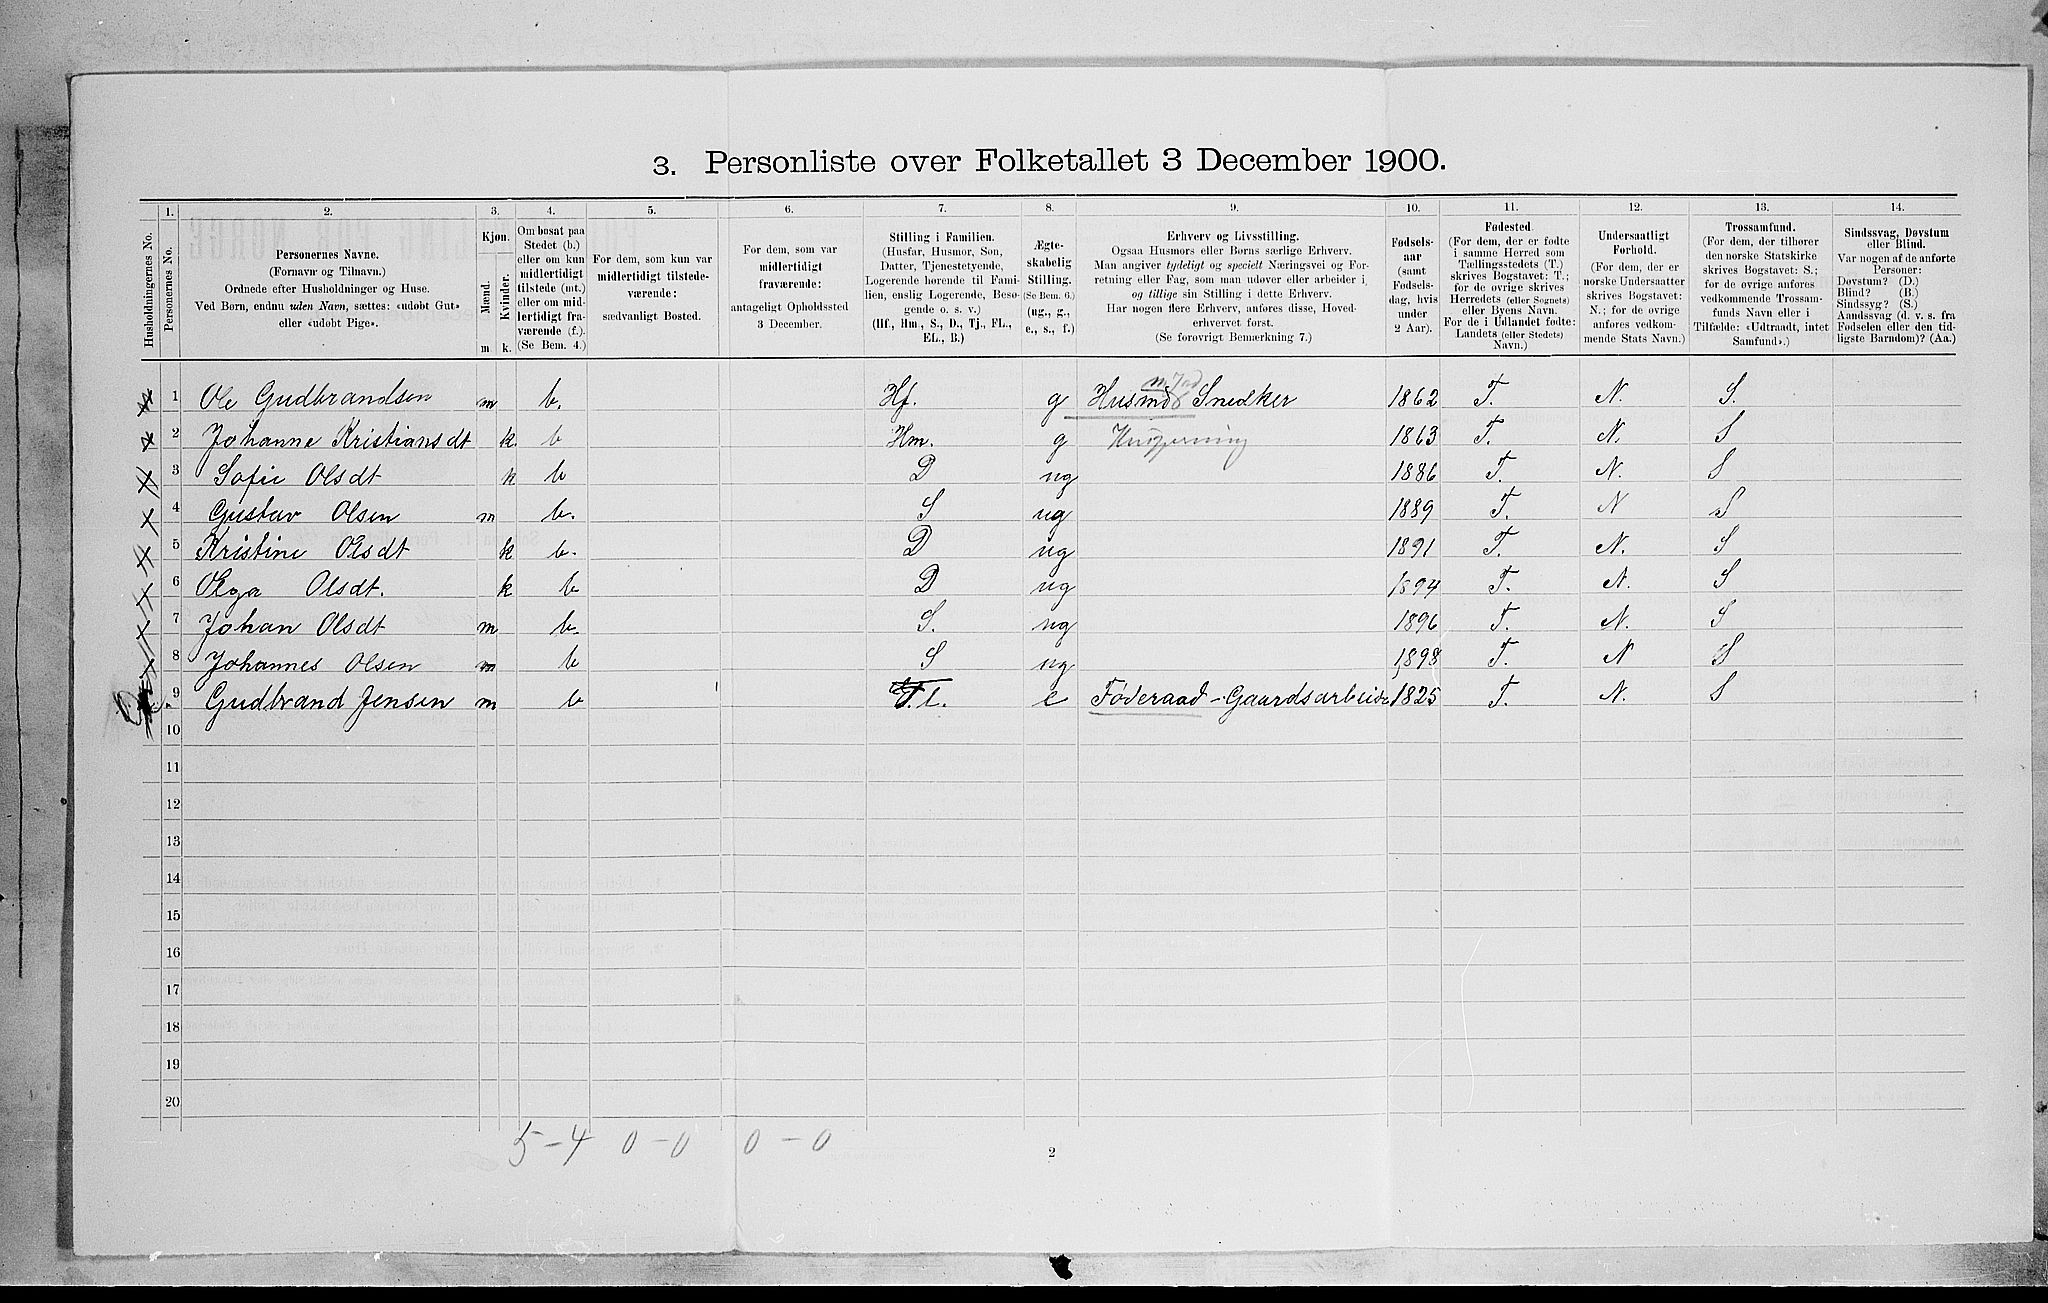 3. Personliste over Folketallet 3 December 1900.
1. 2. 3. 4. 5. 6. 7. 8. 9. 10. 11. 12. 13. 14.
Husholdningernes No.
Personernes No.
Personernes Navne.
(Fornavn og Tilnavn.)
Ordnede efter Husholdninger og Huse.
Ved Børn, endnu uden Navn, sættes: «udøbt Gut»
eller «udøbt Pige».
Kjøn.
Mænd.
Kvinder.
m k.
Om bosat paa
Stedet (b.)
eller om kun
midlertidigt
tilstede (mt.)
eller om mid-
lertidigt fra-
værende (f.).
(Se Bem. 4.)
For dem, som kun var
midlertidigt tilstede-
værende:
sædvanligt Bosted.
For dem, som var
midlertidigt
fraværende:
antageligt Opholdssted
3 December.
Stilling i Familien.
(Husfar, Husmor, Søn,
Datter, Tjenestetyende,
Logerende hørende til Fami-
lien, enslig Logerende, Besø-
gende o. s. v.)
(Hf., Hm., S., D., Tj., FL.,
EL., B.)
Ægte-
skabelig
Stilling.
(Se Bem. 6.)
(ug., g.,
e., s., f.)
Erhverv og Livsstilling.
Ogsaa Husmors eller Børns særlige Erhverv.
Man angiver tydeligt og specielt Næringsvei og For-
retning eller Fag, som man udøver eller arbeider i,
og tillige sin Stilling i dette Erhverv.
Har nogen flere Erhverv, anføres disse, Hoved-
erhvervet først.
(Se forøvrigt Bemærkning 7.)
Fødsels-
aar
(samt
Fødsels-
dag, hvis
under
2 Aar).
Fødested.
(For dem, der er fødte
i samme Herred som
Tællingsstedets (T.)
skrives Bogstavet: T.;
for de øvrige skrives
Herredets (eller Sognets)
eller Byens Navn.
For de i Udlandet fødte:
Landets (eller Stedets)
Navn.)
Undersaatligt
Forhold.
(For dem, der er
norske Undersaatter
skrives Bogstavet:
N.; for de øvrige
anføres vedkom-
mende Stats Navn.)
Trossamfund.
(For dem, der tilhører
den norske Statskirke
skrives Bogstavet: S.;
for de øvrige anføres
vedkommende Trossam-
funds Navn eller i
Tilfælde: «Udtraadt, intet
Samfund».)
Sindssvag, Døvstum
eller Blind.
Var nogen af de anførte
Personer:
Døvstum? (D.)
Blind? (B.)
Sindssyg? (S.)
Aandssvag (d. v. s. fra
Fødselen eller den tid-
ligste Barndom)? (Aa.)
1 Ole Gudbrandsen m b. Hf. g Husmd Snedker 1862 T. N. S.
2 Johanne Kristiansdt k. b Hm. g 1863 T. N. S
3 Sofie Olsdt k b D ug 1886 T. N. S
4 Gustav Olsen m b. S ug 1889 T. N S
5 Kristine Olsdt k b. D ug 1891 T. N. S
6 Olga Olsdt. k b D ug 1894 T. N. S
7 Johan Olsdt m b. S. ug 1896 T. N. S
8 Johannes Olsen m b S ug 1898 T. N S
9 Gudbrand Jensen m b e Føderaad - Gaardsarbeide 1825 T. N. S
10
11
12
13
14
15
16
17
18
19
20
5-4 0-0 0-0
2